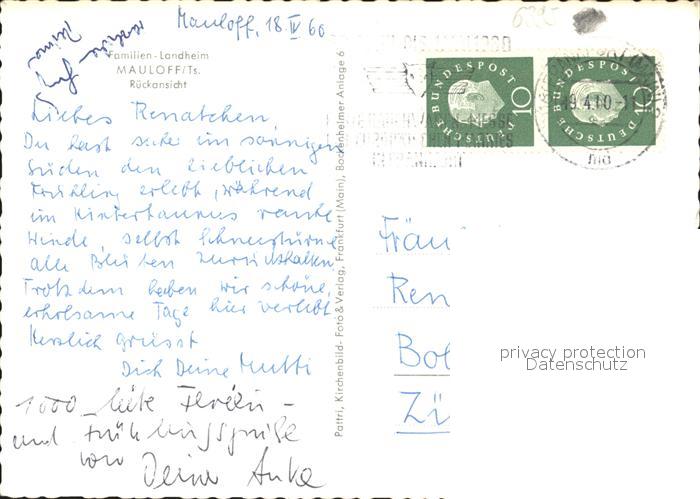 Mauloff, 18 IV 60
Familien-Landheim
MAULOFF/Ts.
Rückansicht
Liebes Renatchen,
Du hast sicher im sonnigen
Süden den lieblichen
Frühling erlebt, während
im Hintertaunus rauhe
Winde, selbst Schneestürme
alle Blüten zurückhalten.
Trotzdem haben wir schöne,
erholsame Tage hier verlebt.
Herzlich grüsst
Dich Deine Mutti
1000 liebe Ferien-
und Frühlingsgrüße
von Deiner Anke
Pattri, Kirchenbild- Foto & Verlag, Frankfurt (Main), Bockenheimer Anlage 6
DEUTSCHE BUNDESPOST
10
DEUTSCHE BUNDESPOST
10
19.4.60
Fräu
Ren
Bol
Zü
privacy protection
Datenschutz